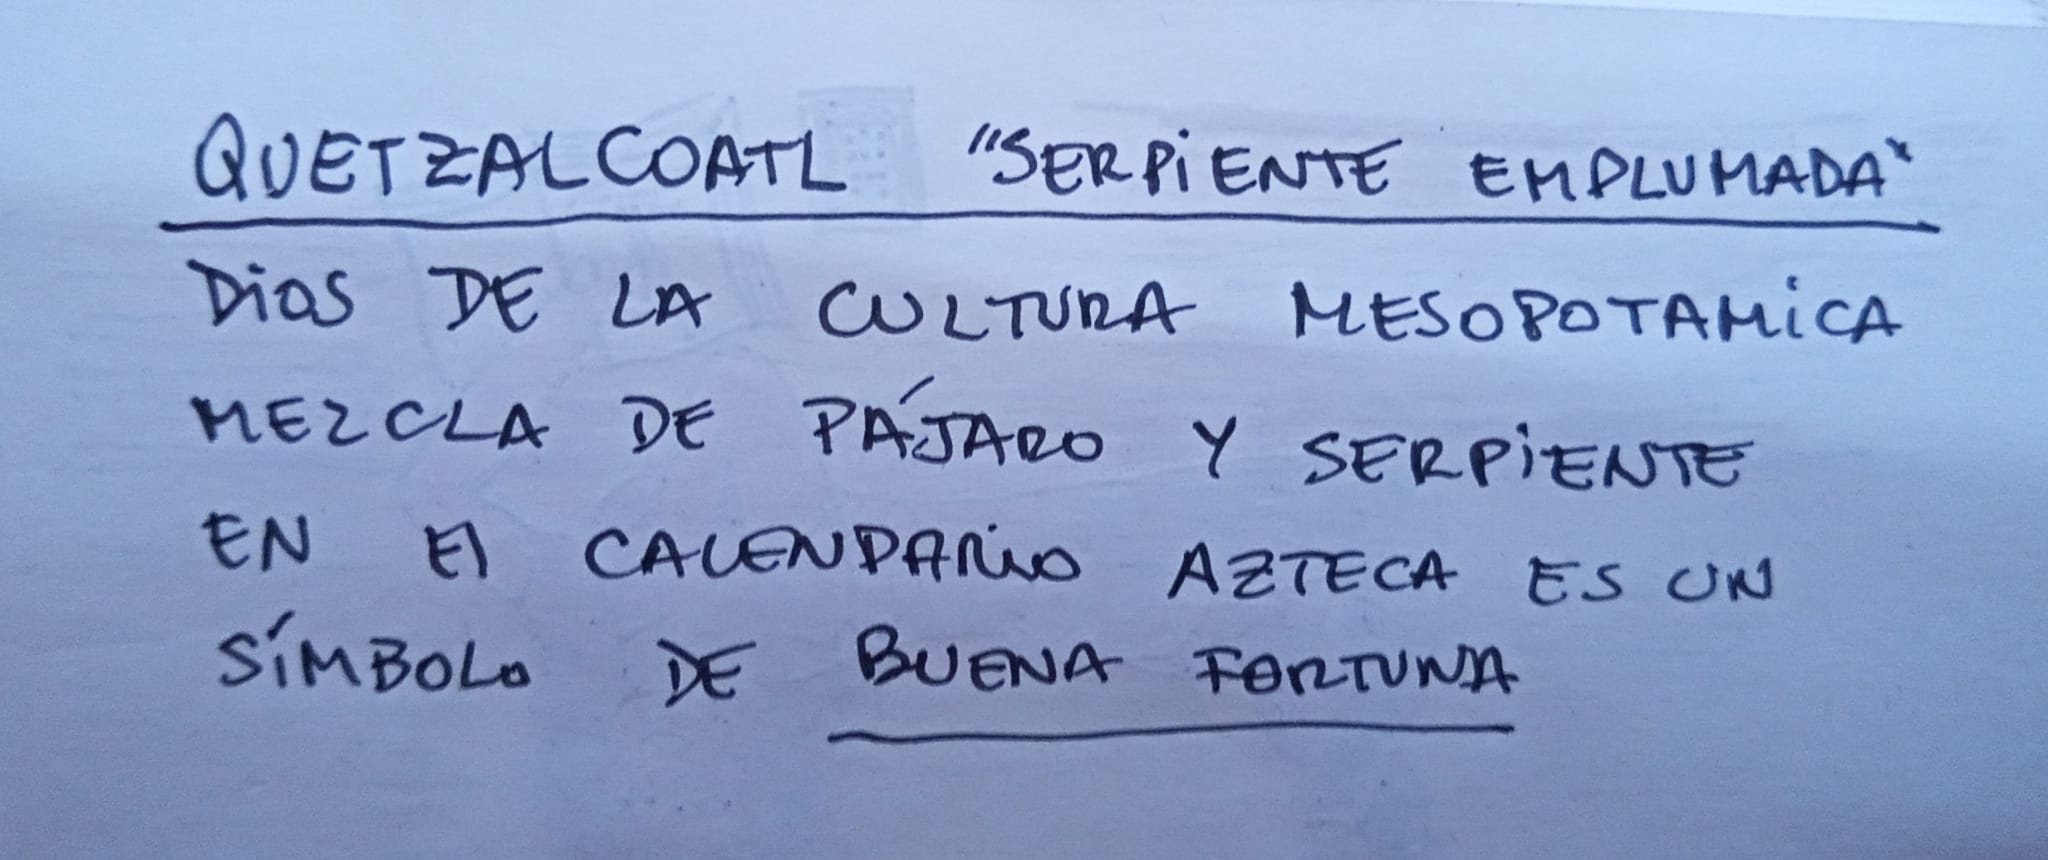 QUETZALCOATL "SERPIENTE EMPLUMADA"
DIOS DE LA CULTURA MESOPOTAMICA
MEZCLA DE PÁJARO Y SERPIENTE
EN El CALENDARIO AZTECA ES UN
SÍMBOLO DE BUENA FORTUNA